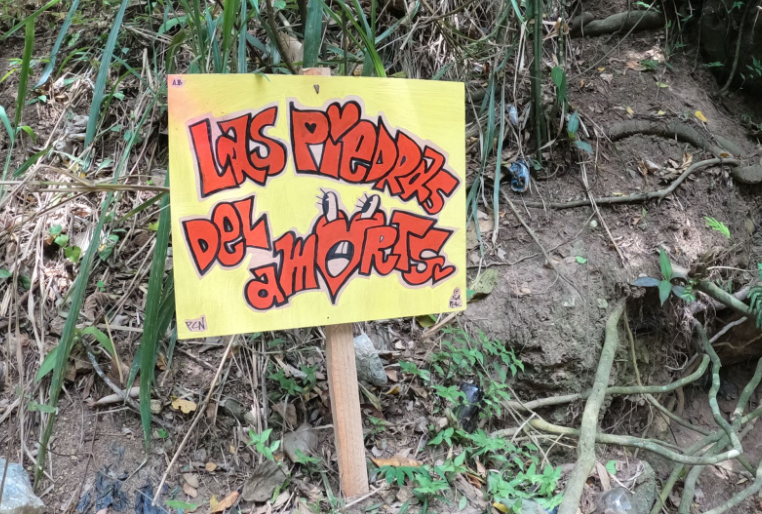 Las Piedras
Del
amorts
PCN